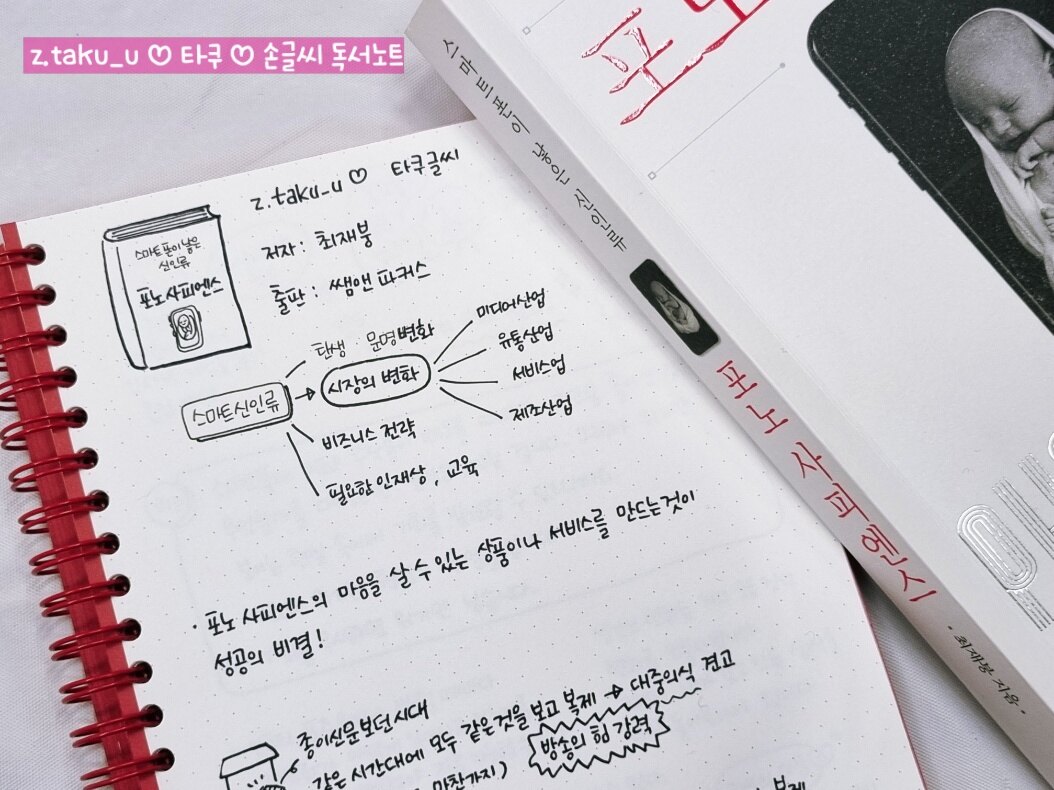 z.taku_u ♡ 타쿠 ♡ 손글씨 독서노트
z.taku_u ♡ 타쿠글씨
스마트폰이 낳은
신인류
포노 사피엔스
저자 : 최재붕
출판 : 쌤앤 파커스
스마트신인류
탄생 문명변화
시장의 변화
미디어산업
유통산업
서비스업
제조산업
비즈니스 전략
필요한 인재상, 교육
· 포노 사피엔스의 마음을 살 수 있는 상품이나 서비스를 만드는것이
성공의 비결!
종이신문보던시대
같은 시간대에 모두 같은것을 보고 복제 → 대중의식 견고
방송의 힘 강력
마찬가지)
복제
스마트폰이 낳은 신인류
포노 사피엔스
· 최재붕 지음 ·
포노